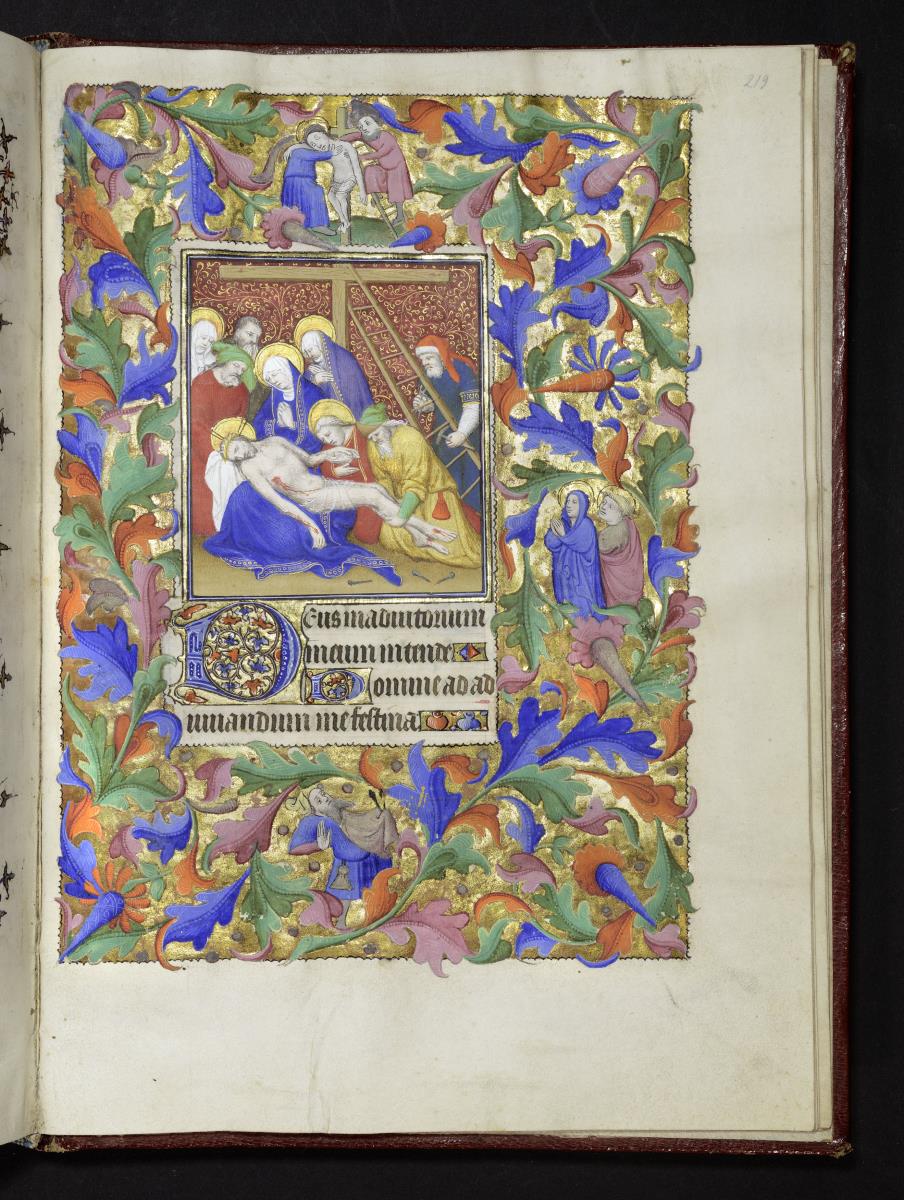 219
Deus in adiutorium
meum intende
Domine ad ad
iuuandum me festina